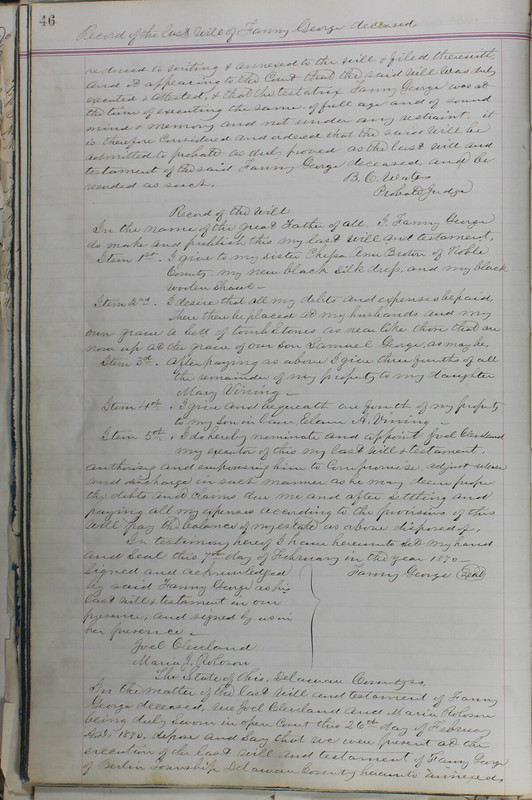 46
Record of the Last Will of Fanny George deceased,
reduced to writing & annexed to the will & filed therewith,
And it appearing to the Court that the said Will was duly
executed & attested, & that the testatrix Fanny George was at
the time of executing the same, of full age and of sound
mind & memory and not under any restraint, it
is therefore Considered and ordered that the said Will be
admitted to probate as duly proved as the last Will and
testament of the said Fanny George deceased and be
recorded as such.
B. C. Waters
Probate Judge
Record of the Will
In the name of the great Father of all, I, Fanny George
do make and publish this my last Will and testament,
Item 1st. I give to my sister Ann Brown of Noble
County my new black silk dress and my black
woolen Shawl —
Item 2nd. I desire that all my debts and expenses be paid
There then be placed at my husbands and my
own grave a Sett of tombstones as near like those that are
now up at the grave of our son Samuel George, as may be,
Item 3d. After paying as above I give three fourths of all
the remainder of my property to my daughter
Mary Vining —
Item 4th. I give and bequeath one fourth of my property
to my Son in law A. Vining
Item 5th. I do hereby nominate and appoint Joel Cleveland
my executor of this my last Will & testament,
authorizing and empowering him to Compromise adjust release
and discharge in such manner as he may deem proper
the debts and claims due me and after settling and
paying all my expenses according to the provisions of this
Will pay the balance of my estate as above disposed of,
In testimony hereof I have hereunto Set my hand
and Seal this 7th day of February in the year 1870 —
Signed and acknowledged Fanny George (Seal)
by said Fanny George as his
last Will & testament in our
presence, and signed by us in
her presence —
Joel Cleveland
Maria J. Roloson
The State of Ohio, Delaware County ss,
In the matter of the last Will and testament of Fanny
George deceased, We Joel Cleveland and Maria Roloson
being duly Sworn in open Court this 26th day of February
A.D. 1870, depose and Say that we were present at the
execution of the last Will and testament of Fanny George
of Berlin Township Delaware County hereunto annexed,